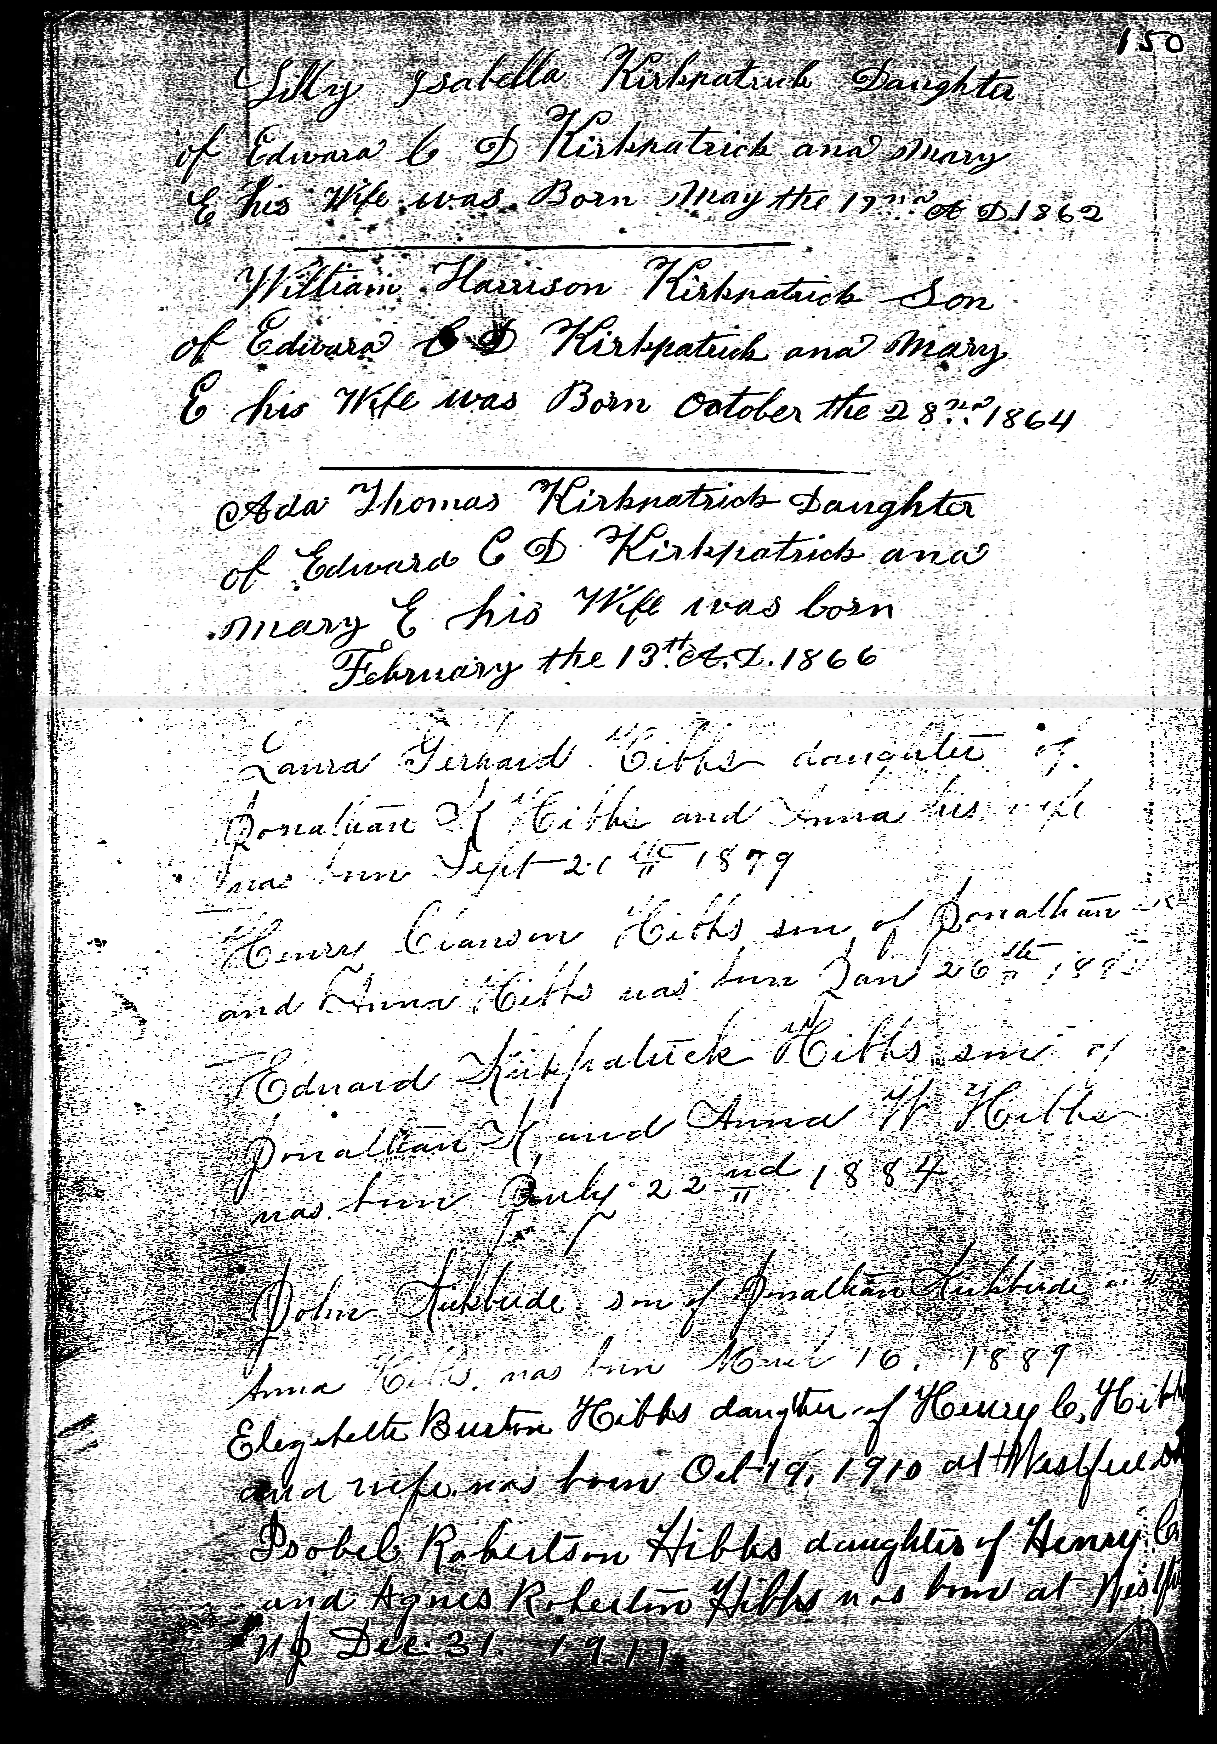 150
Lilly Isabella Kirkpatrick Daughter
of Edward C D Kirkpatrick and Mary
E his Wife was Born May the 17nd A D 1862
William Harrison Kirkpatrick Son
of Edward C D Kirkpatrick and Mary
E his Wife was Born October the 28nd 1864
Ada Thomas Kirkpatrick Daughter
of Edward C D Kirkpatrick and
Mary E his Wife was born
February the 13th A.D. 1866
Laura Gerhard Hibbs daughter of
Jonathan K Hibbs and Anna his wife
was born Sept 26th 1879
Henry Clauson Hibbs son of Jonathan
and Anna Hibbs was born Jan 26th
Edward Kirkpatrick Hibbs son of
Jonathan K and Anna W Hibbs
was born July 22nd 1884
John Kirkbride son of Jonathan Kirkbride and
Anna Hibbs was born March 16. 1889
Elizabeth Burton Hibbs daughter of Henry C. Hibbs
and wife was born Oct 19, 1910 at Westfield
Isobel Robertson Hibbs daughter of Henry C.
and Agnes Robertson Hibbs was born at Westf
NJ Dec. 31. 1911